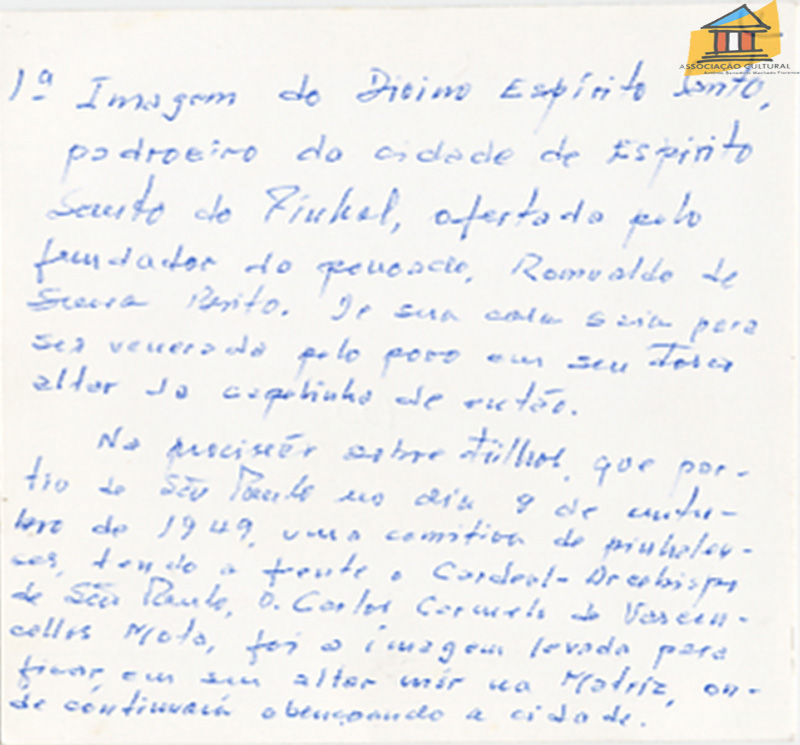 ASSOCIAÇÃO CULTURAL
1ª Imagem do Divino Espírito Santo,
padroeiro da cidade de Espirito
Santo do Pinhal, ofertada pelo
fundador do povoado, Romualdo de
Souza Brito. De sua casa saia para
ser venerada pelo povo em seu tosco
altar da capelinha de então.
Na procissão sobre trilhos, que par-
tiu de São Paulo no dia 9 de outu-
bro de 1949, uma comitiva de pinhalen-
ses, tendo a frente o Cardeal-Arcebispo
de São Paulo, D. Carlos Carmelo de Vascon-
cellos Mota, foi a imagem levada para
ficar, em seu altar mór na Matriz, on-
de continuará abençoando a cidade.